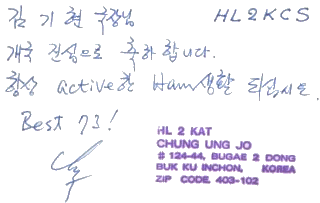 김 기현 국장님 HL2KCS
개국 진심으로 축하 합니다.
항상 active한 Ham생활 되십시오.
Best 73!
HL 2 KAT
CHUNG UNG JO
# 124-44, BUGAE 2 DONG
BUK KU INCHON, KOREA
ZIP CODE, 403-102